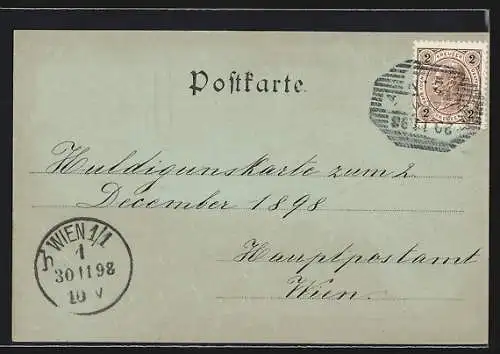 Postkarte.
2 2
2 2
Huldigungskarte zum 2.
December 1898
Hauptpostamt
Wien.
WIEN 1/1
h
1
30 11 98
10 V